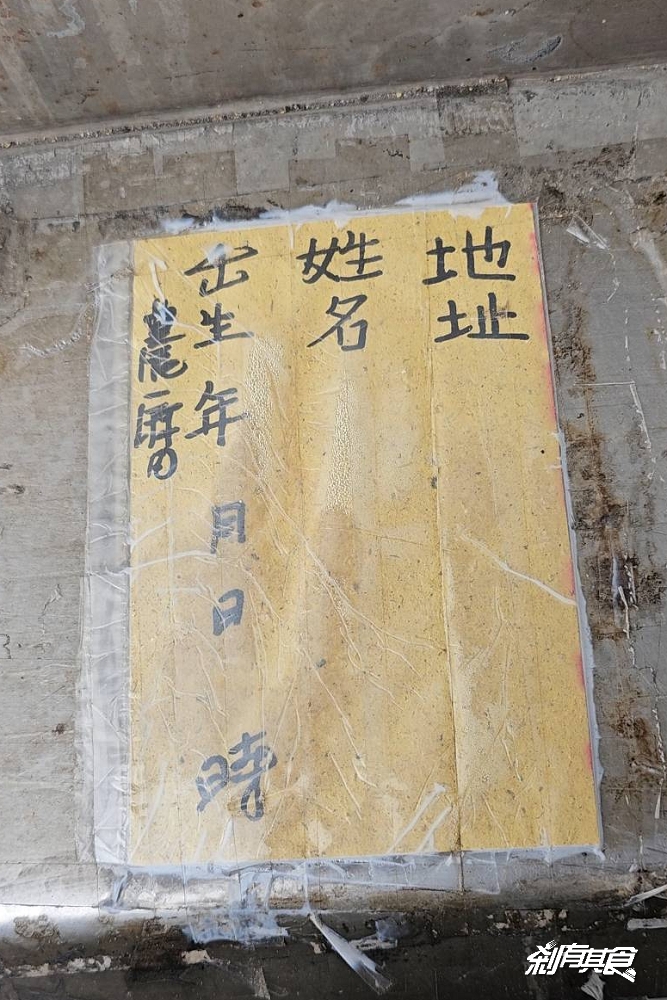 地址
姓名
出生年月日時
農曆
剎有其食